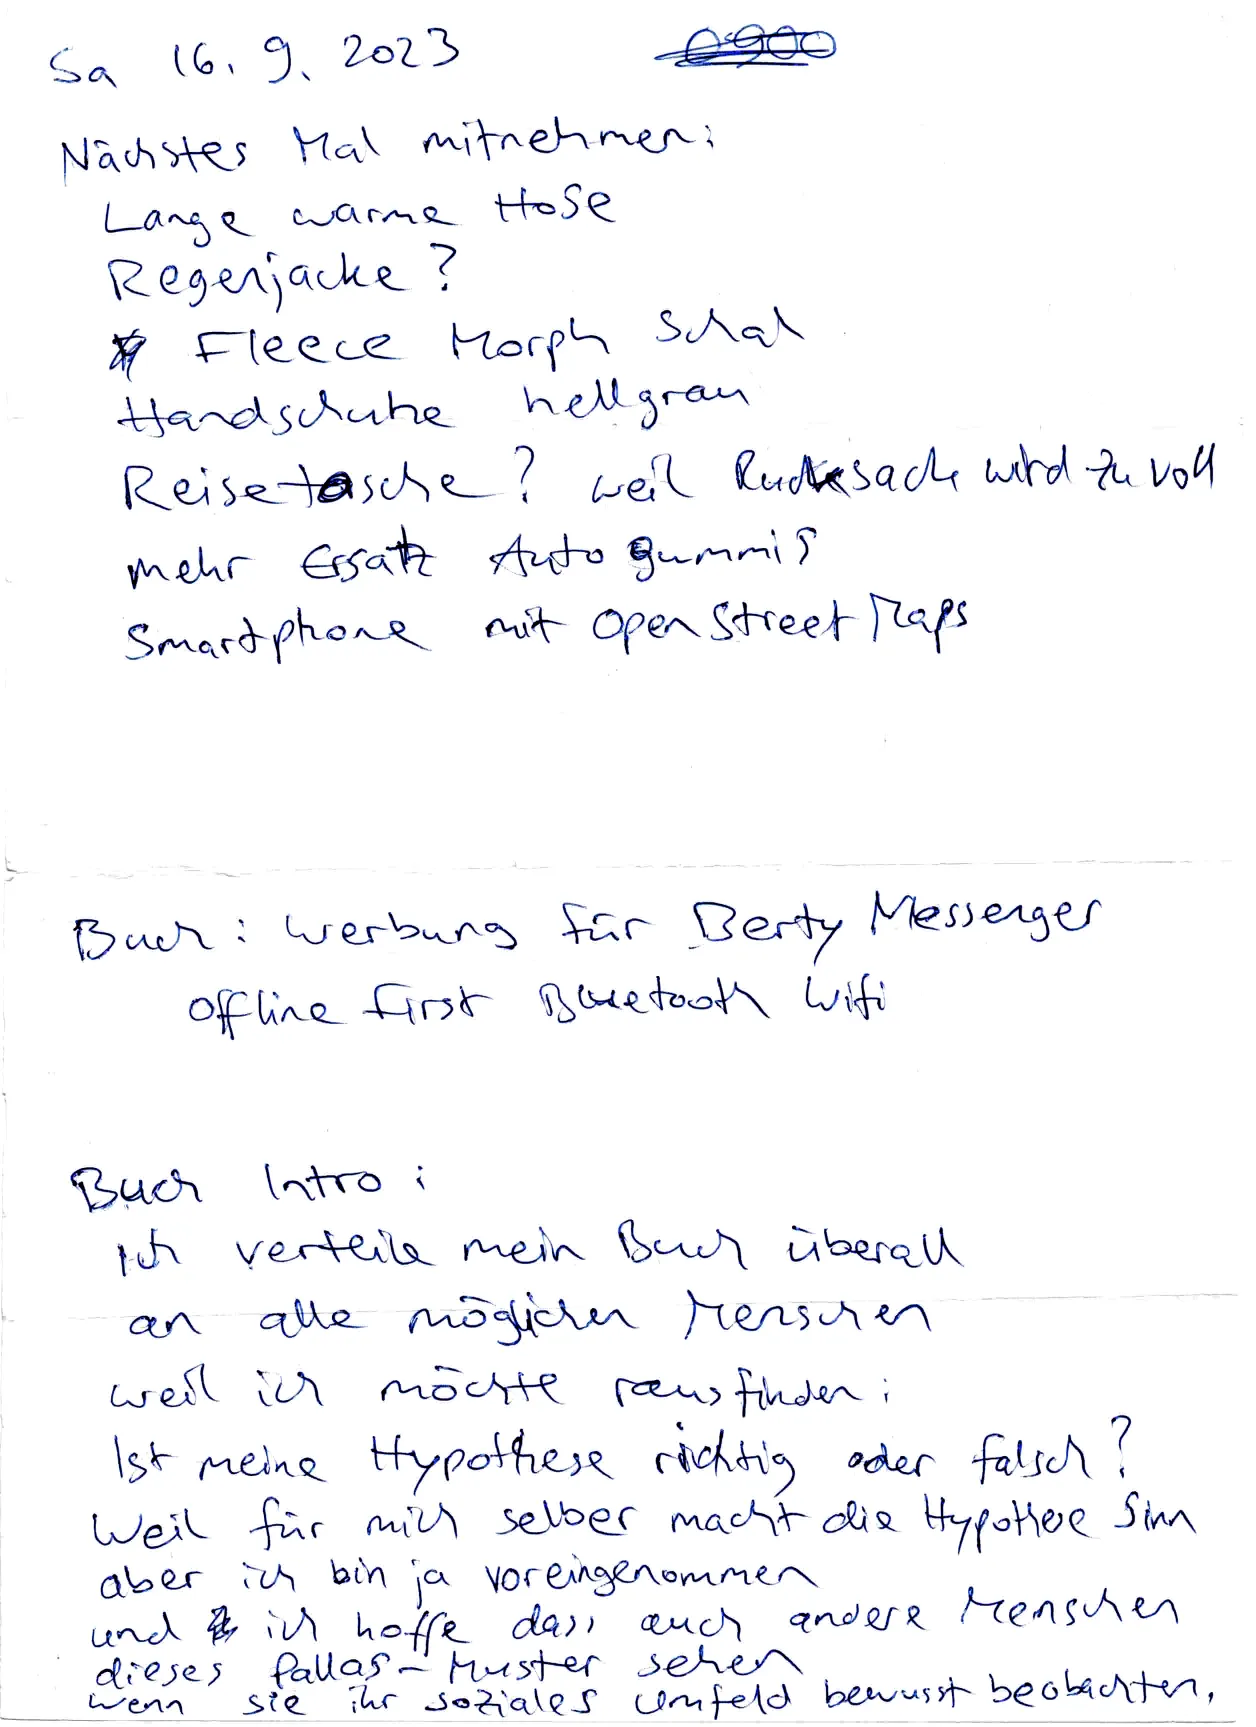 Sa 16. 9. 2023
Nächstes Mal mitnehmen:
Lange warme Hose
Regenjacke?
Fleece Morph Schal
Handschuhe hellgrau
Reisetasche? weil Rucksack wird zu voll
mehr Ersatz Auto gummis
Smartphone mit OpenStreetMaps
Buch: Werbung für Berty Messenger
Offline First Bluetooth Wifi
Buch Intro:
Ich verteile mein Buch überall
an alle möglichen Menschen
weil ich möchte rausfinden:
Ist meine Hypothese richtig oder falsch?
Weil für mich selber macht die Hypothese Sinn
aber ich bin ja voreingenommen
und ich hoffe dass auch andere Menschen
dieses Pallas-Muster sehen
wenn sie ihr soziales Umfeld bewusst beobachten.